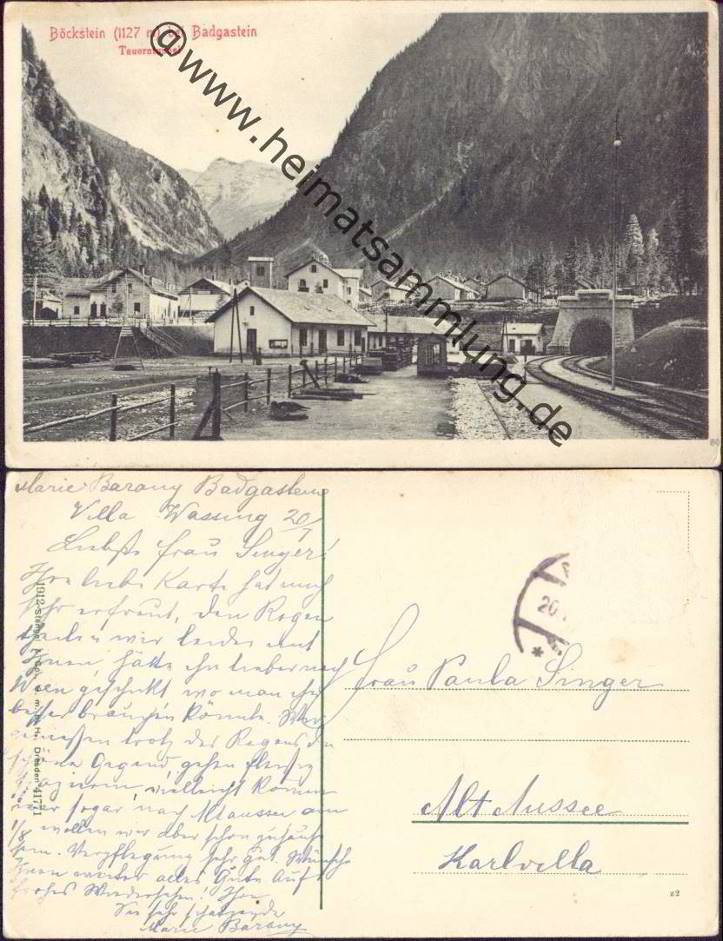 Böckstein (1127 m) bei Badgastein
Tauerntunnel
@www.heimatsammlung.de
Marie Barany Badgastein
Villa Wassing 20/7
Liebste Frau Singer!
Ihre liebe Karte hat mich
sehr erfreut, den Regen
theilen wir leider mit
Ihnen, hätte ihn lieber nach
Wien geschickt wo man ihn
besser brauchen könnte. Wir
geniessen trotz des Regens die
schöne Gegend, gehen fleissig
spazieren, vielleicht kommen
wir sogar nach Alt Aussee am
1/8 wollen wir aber schon zuhause
sein. Verpflegung sehr gut. Wünsche
Ihnen weiter alles Gute Auf
frohes Wiedersehen! Ihre
Sie sehr schätzende
Marie Barany
1912 Stengel & Co., G. m. b. H., Dresden 41771
20.
Frau Paula Singer
Alt Aussee
Karlvilla
22